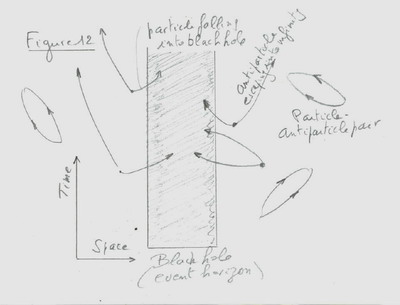 Figure 12
particle falling
into black hole
antiparticle
escaping into infinity
Particle-
antiparticle pair
Time
Space
Black hole
(event horizon)